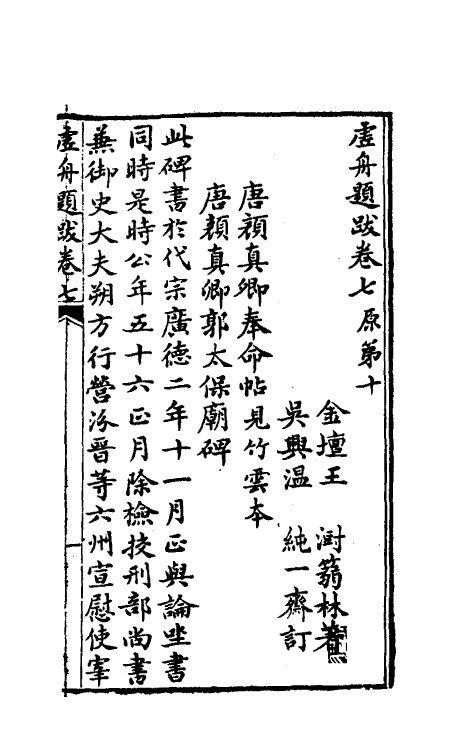 虛舟題跋卷七原第十
金壇王　澍蒻林著
吳興温　純一齋訂
唐顔真卿奉命帖見竹雲本
唐顔真卿郭太保廟碑
此碑書於代宗廣德二年十一月正與論坐書
同時是時公年五十六正月除檢挍刑部尚書
兼御史大夫朔方行營汾晉等六州宣慰使宰
虛舟題跋卷七
一